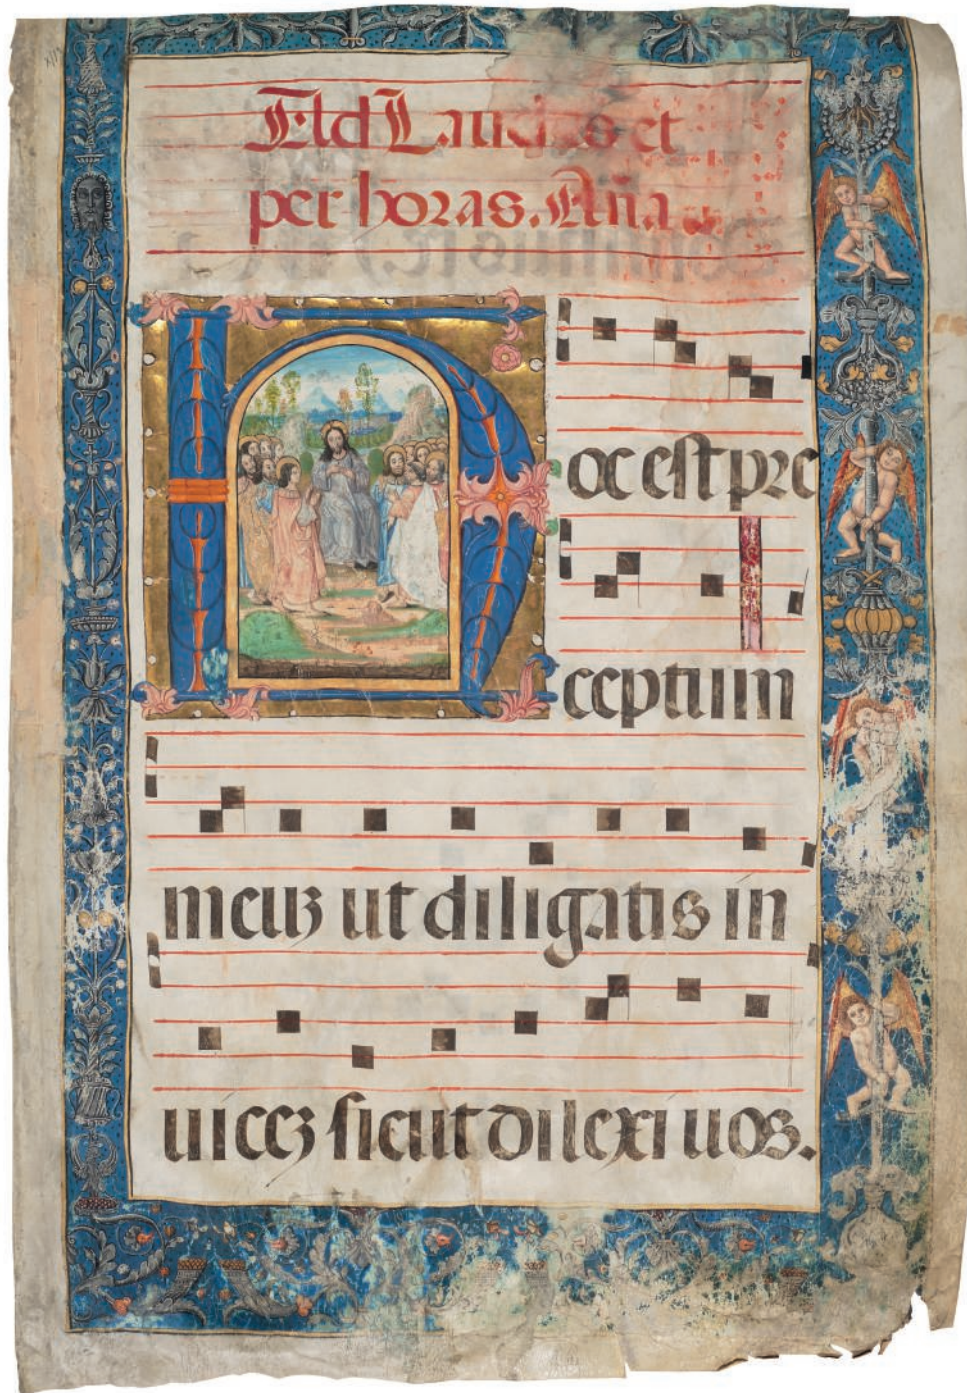 Ad Laudes et
per horas. Aña.
Hoc est pre
ceptum
meuz ut diligatis in
uicez sicut dilexi uos.